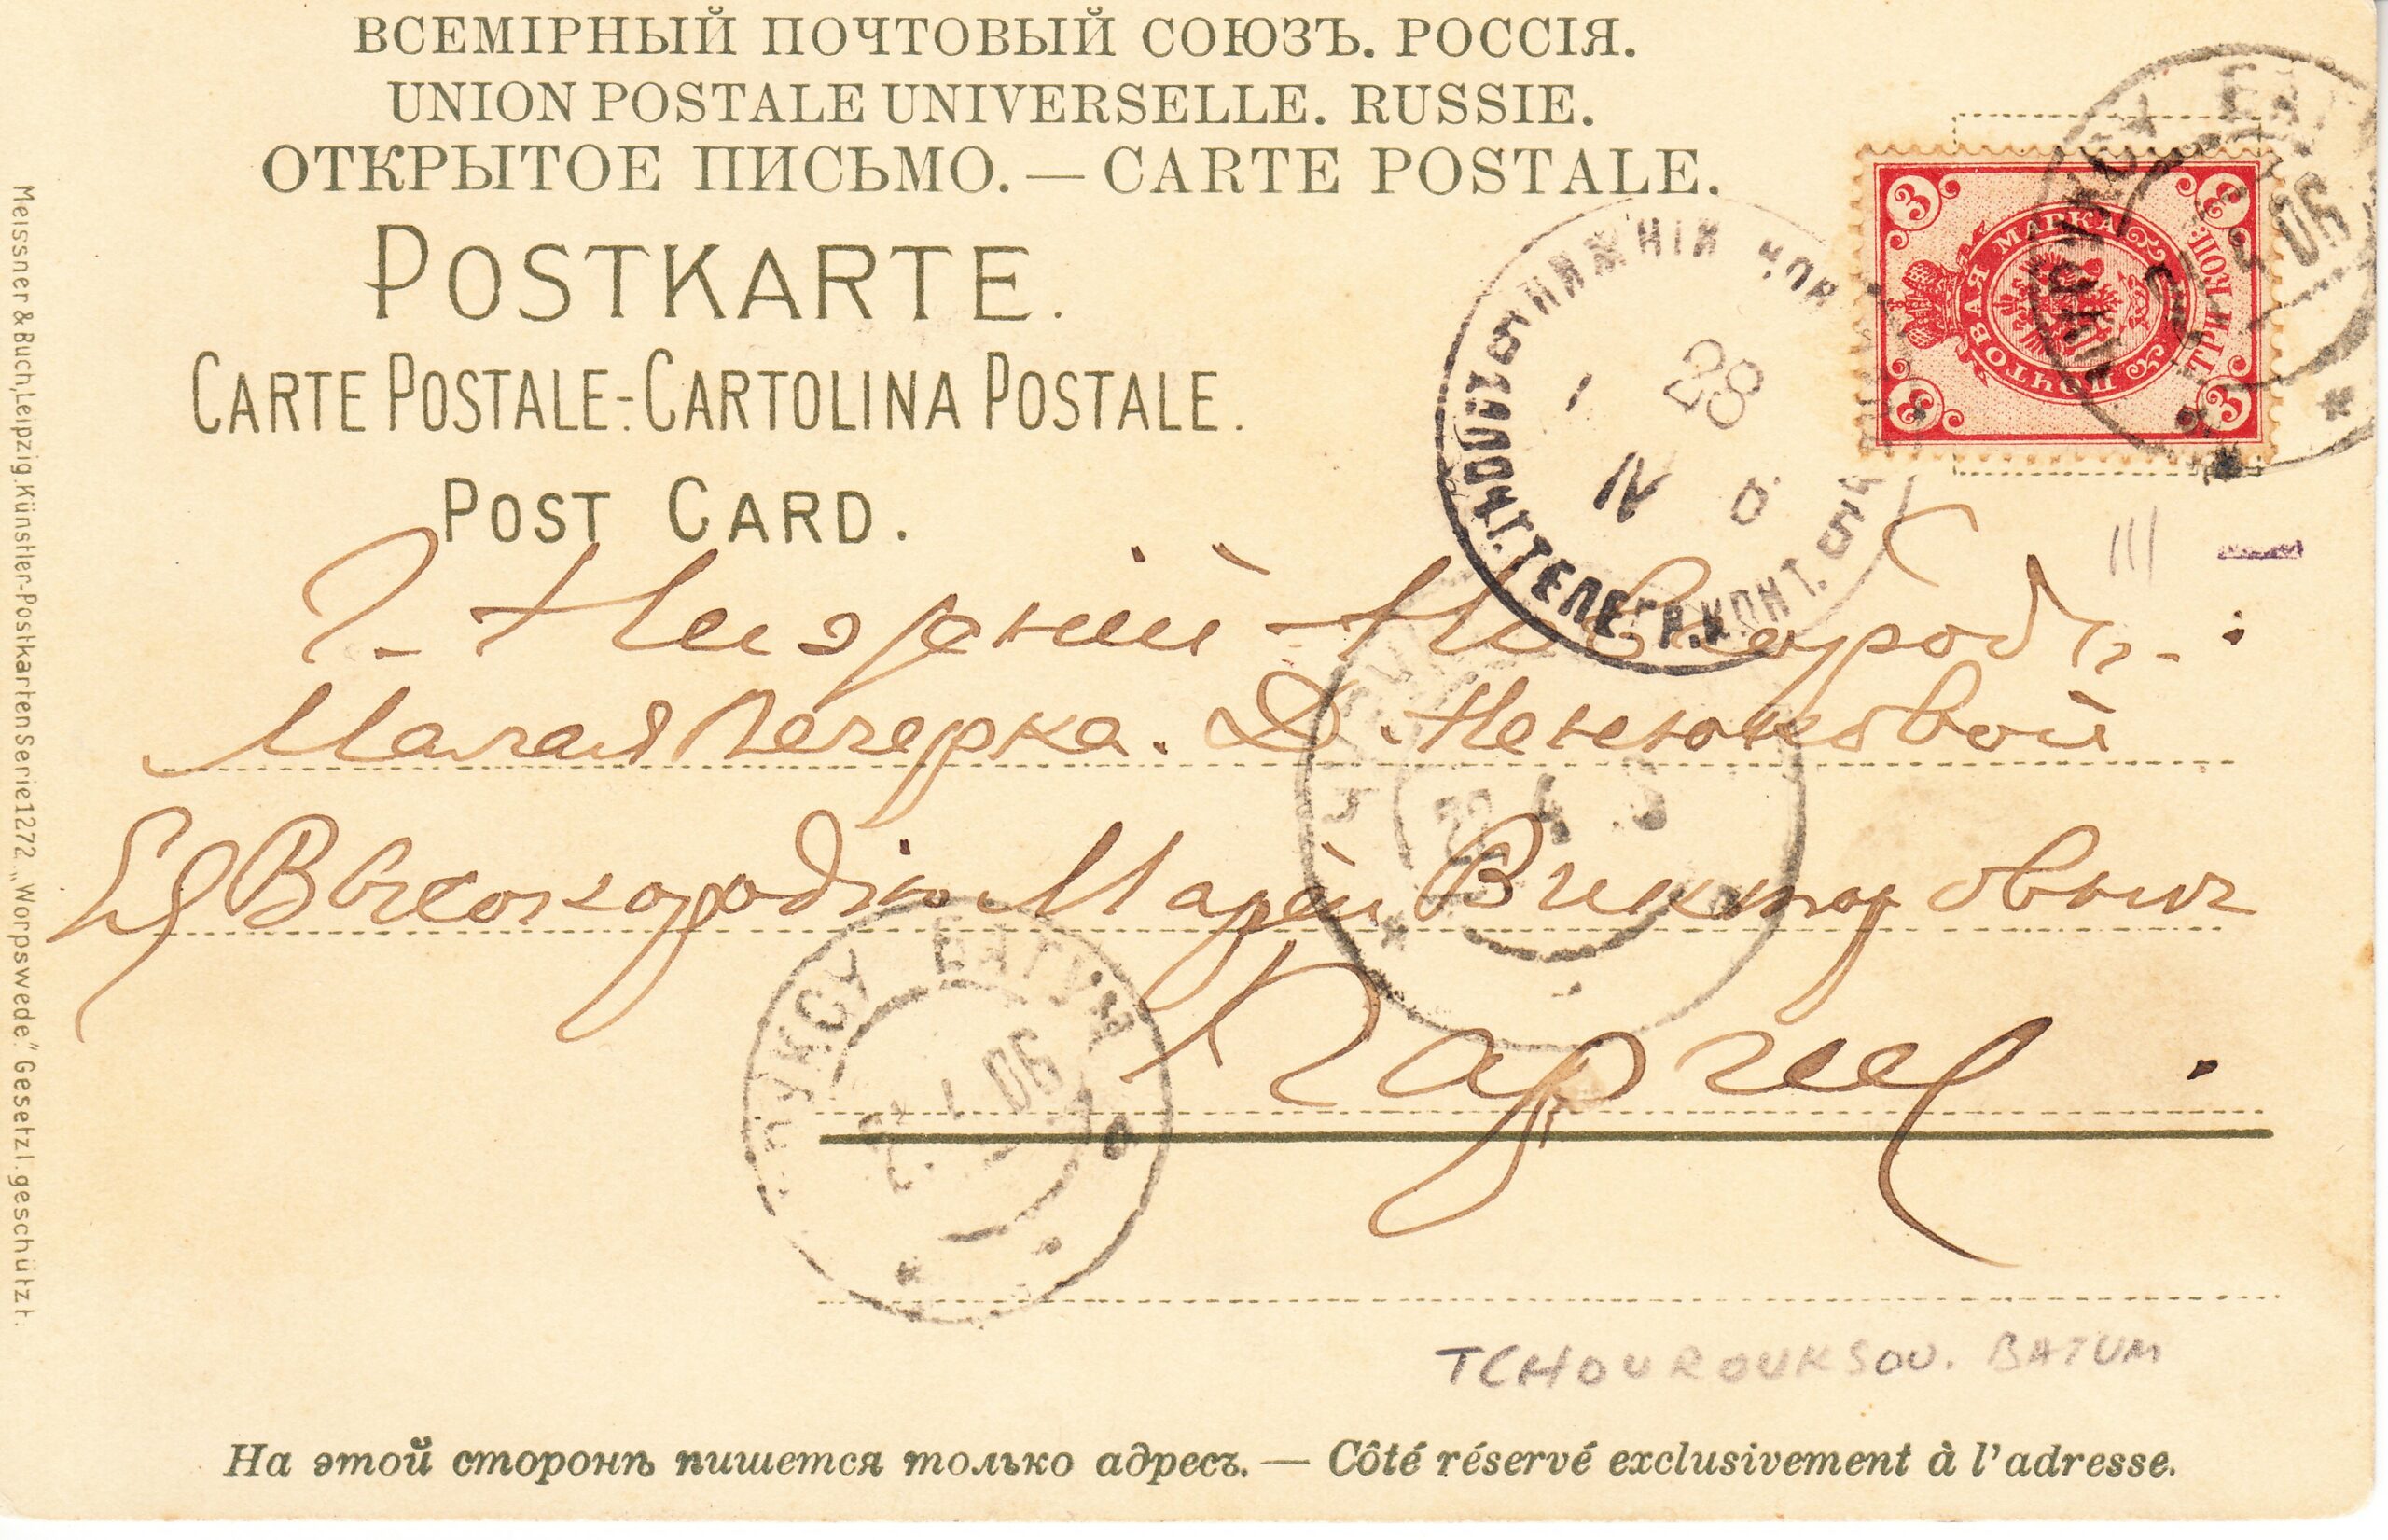 ВСЕМІРНЫЙ ПОЧТОВЫЙ СОЮЗЪ. РОССІЯ.
UNION POSTALE UNIVERSELLE. RUSSIE.
ОТКРЫТОЕ ПИСЬМО. — CARTE POSTALE.
POSTKARTE.
CARTE POSTALE-CARTOLINA POSTALE.
POST CARD.
ПОЧТОВАЯ МАРКА
ТРИ КОП.
3 3 3 3
НИЖНІЙ НОВ
28 IV 0
ПОЧТ. ТЕЛЕГР. КОНТ.
БАТУМ
06
Г. Нижній-Новгородъ.
Малая Печерка. Д. Ненюковой
Ея Высокородію Маріи Викторовнѣ
22 4
ЧУРУКСУ БАТУМ
06
TCHOUROUKSOU. BATUM
На этой сторонѣ пишется только адресъ. — Côté réservé exclusivement à l'adresse.
Meissner & Buch, Leipzig. Künstler-Postkarten Serie 1272 „Worpswede." Gesetzl. geschützt.